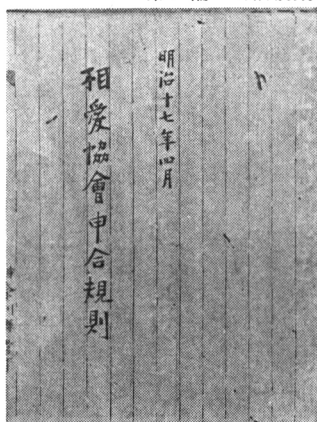 明治十七年四月
相愛協會申合規則